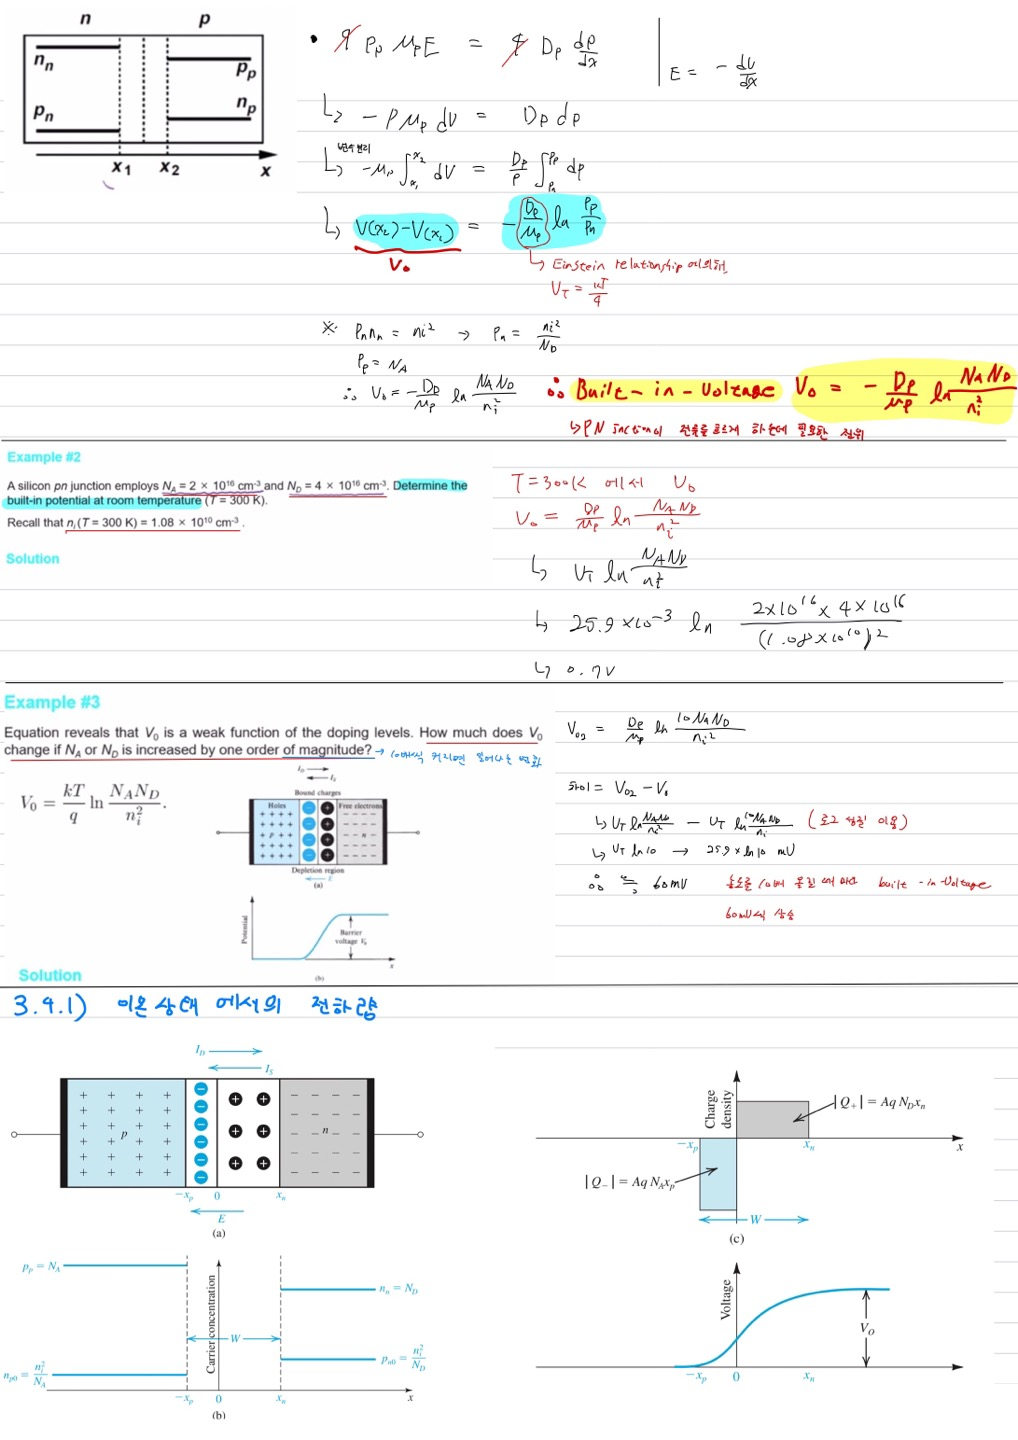 n p
n_n
p_n
p_p
n_p
x₁ x₂ x
• q p_p μ_p E = q D_p dp/dx
E = - dV/dx
↳ - p μ_p dV = D_p dp
↳ -μ_p ∫_{x₁}^{x₂} dV = D_p/p ∫_{p_n}^{p_p} dp
↳ V(x₂)-V(x₁) = - D_p/μ_p ln p_p/p_n
V₀
↳ Einstein relationship 에 의해,
V_T = kT/q
※ p_n n_n = n_i² → p_n = n_i²/N_D
p_p = N_A
∴ V₀ = - D_p/μ_p ln N_A N_D/n_i²
∴ Built-in-Voltage V₀ = - D_p/μ_p ln N_A N_D/n_i²
전류를 흐르게 하는데 필요한 전위
Example #2
A silicon pn junction employs N_A = 2 × 10¹⁶ cm⁻³ and N_D = 4 × 10¹⁶ cm⁻³. Determine the
built-in potential at room temperature (T = 300 K).
Recall that n_i (T = 300 K) = 1.08 × 10¹⁰ cm⁻³ .
Solution
T=300K 에서 V₀
V₀ = D_p/μ_p ln N_A N_D/n_i²
↳ V_T ln N_A N_D/n_i²
↳ 25.9 ×10⁻³ ln 2×10¹⁶ × 4×10¹⁶/(1.08×10¹⁰)²
↳ 0.7V
Example #3
Equation reveals that V₀ is a weak function of the doping levels. How much does V₀
change if N_A or N_D is increased by one order of magnitude? → 10배씩 커지면 일어나는 변화
V₀ = kT/q ln N_A N_D/n_i².
I_D
I_S
Bound charges
Holes Free electrons
p n
Depletion region
E
(a)
Potential
Barrier
voltage V₀
x
(b)
V₀₂ = D_p/μ_p ln 10N_A N_D/n_i²
차이 = V₀₂ - V₀
↳ V_T ln N_A N_D/n_i² - V_T ln 10N_A N_D/n_i (로그 성질 이용)
↳ V_T ln 10 → 25.9 × ln 10 mV
∴ ≒ 60mV 농도를 10배 올릴 때 마다 built-in-Voltage
60mV씩 상승
Solution
3.4.1) 이온상태 에서의 전하량
I_D
I_S
p n
-x_p 0 x_n
E
(a)
Charge density
|Q₊| = AqN_Dx_n
-x_p x_n x
|Q₋| = AqN_Ax_p
W
(c)
p_p = N_A
Carrier concentration
n_n = N_D
W
p_n0 = n_i²/N_D
n_p0 = n_i²/N_A
-x_p 0 x_n x
(b)
Voltage
V_O
-x_p 0 x_n